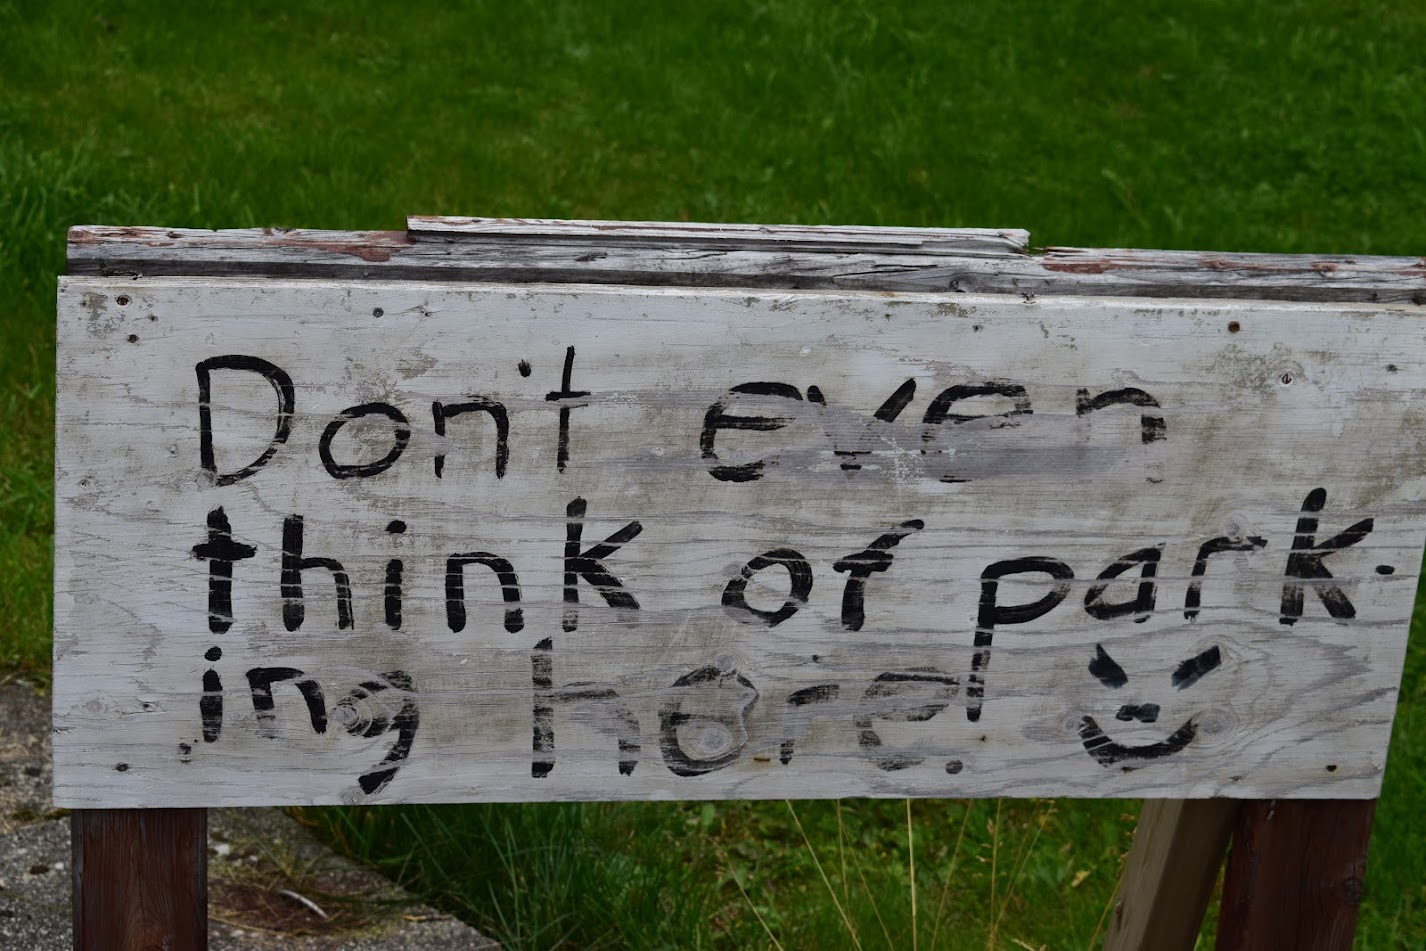 Don't even
think of park-
ing here!